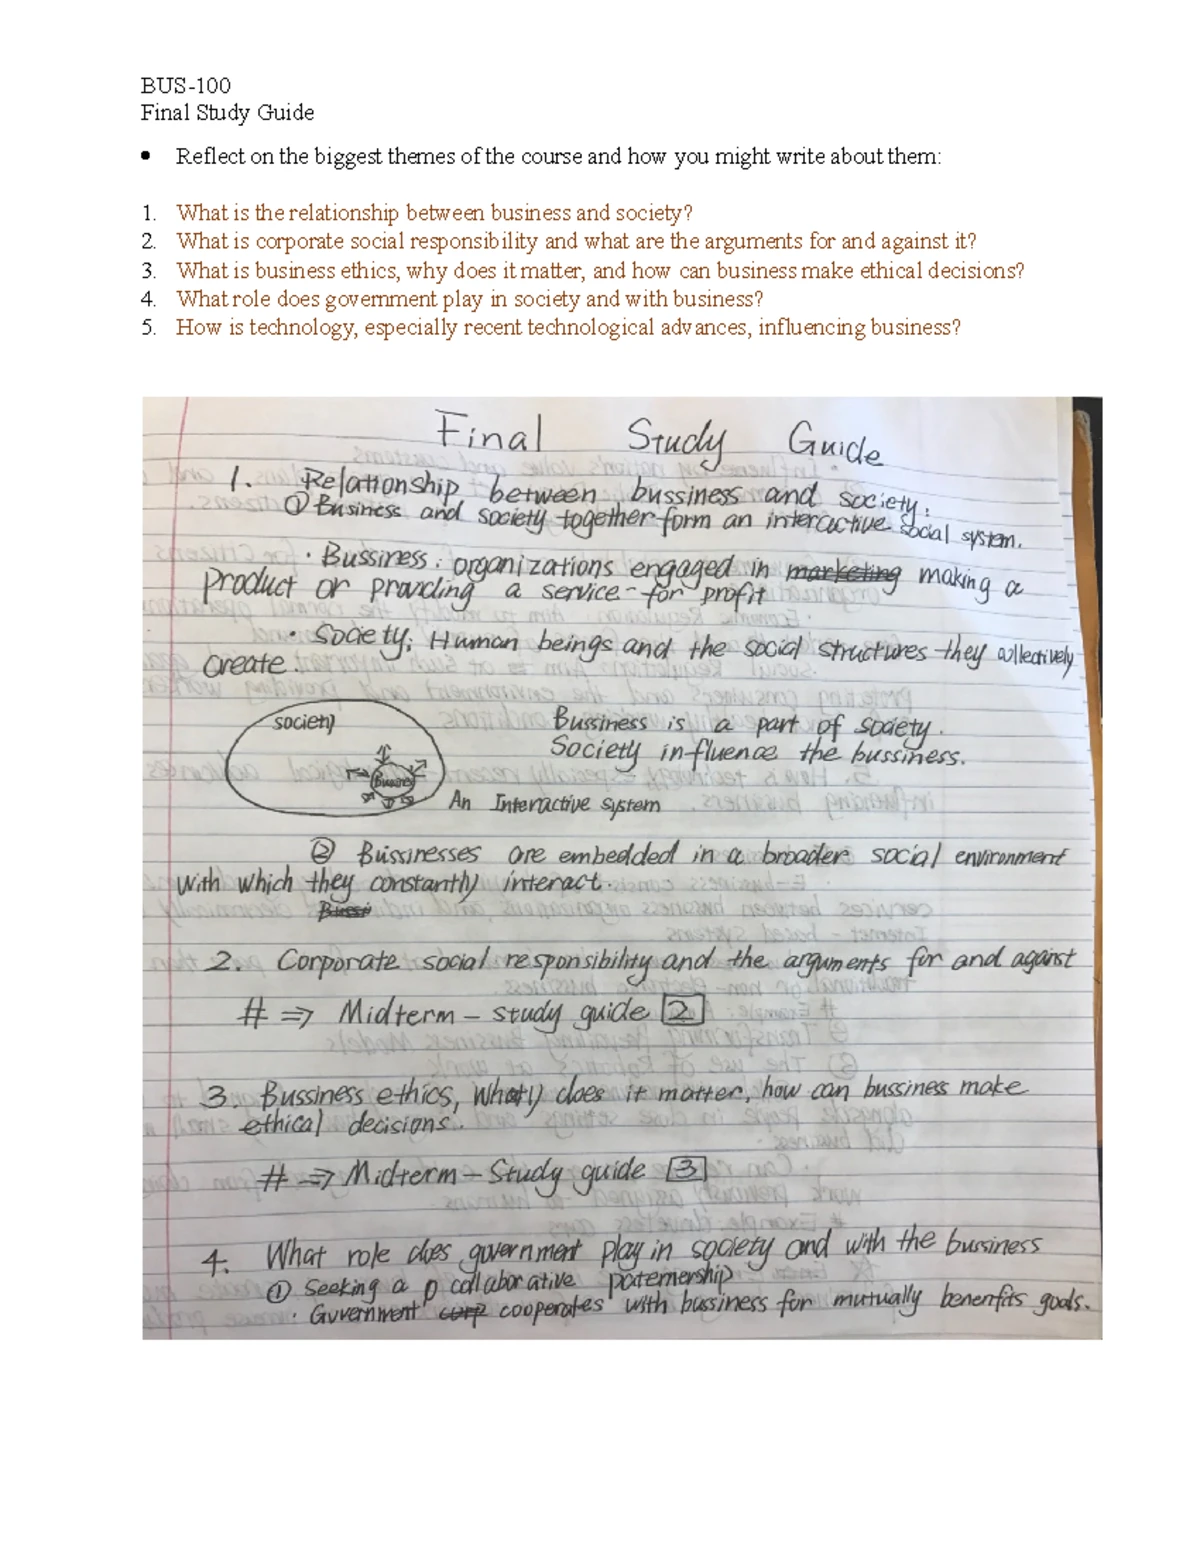 BUS-100
Final Study Guide
• Reflect on the biggest themes of the course and how you might write about them:
1. What is the relationship between business and society?
2. What is corporate social responsibility and what are the arguments for and against it?
3. What is business ethics, why does it matter, and how can business make ethical decisions?
4. What role does government play in society and with business?
5. How is technology, especially recent technological advances, influencing business?
Final Study Guide
1. Relationship between bussiness and society.
① Business and society together form an interactive social system.
· Bussiness: organizations engaged in marketing making a
product or providing a service - for profit
· Society: Human beings and the social structures they collectively
create.
society
Bussiness is a part of society.
Society influence the bussiness.
Business
An Interactive system
② Bussinesses are embedded in a broader social environment
with which they constantly interact.
Bussi
2. Corporate social responsibility and the arguments for and against
# ⇒ Midterm - study guide 2
3. Bussiness ethics, does it matter, how can bussiness make
ethical decisions.
# ⇒ Midterm - Study guide 3
4. What role does government play in society and with the bussiness
① Seeking a collaborative paternership
· Government corp cooperates with bussiness for mutually benenfits goals.